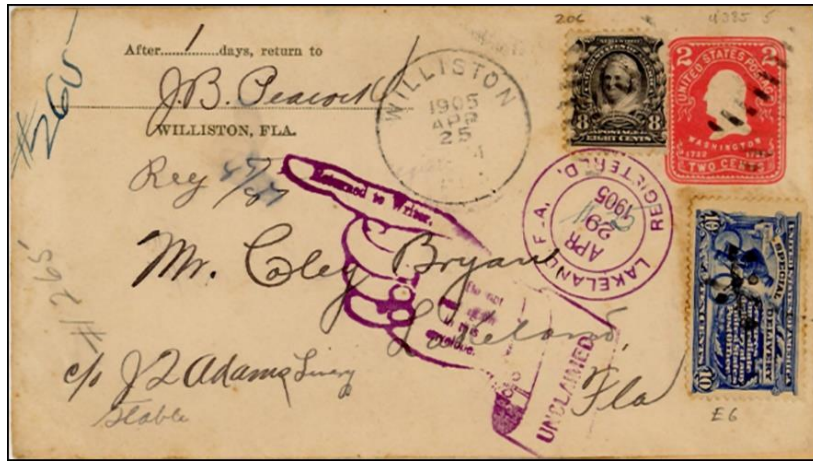 206
U385 5
After 1 days, return to
J.B. Peacock
WILLISTON, FLA.
#260
WILLISTON
1905
APR
25
8 POSTAGE 8
EIGHT CENTS
2 2
UNITED STATES POSTAGE
WASHINGTON
1732
TWO CENTS
Reg
Returned to Writer.
LAKELAND, FLA.
APR
29
1905
REGISTERED.
Mr. Coley Bryan
Lakeland,
Fla
#265
c/o J Q Adams Livery
Stable
UNCLAIMED
UNITED STATES OF AMERICA
SPECIAL DELIVERY
10 10
E6